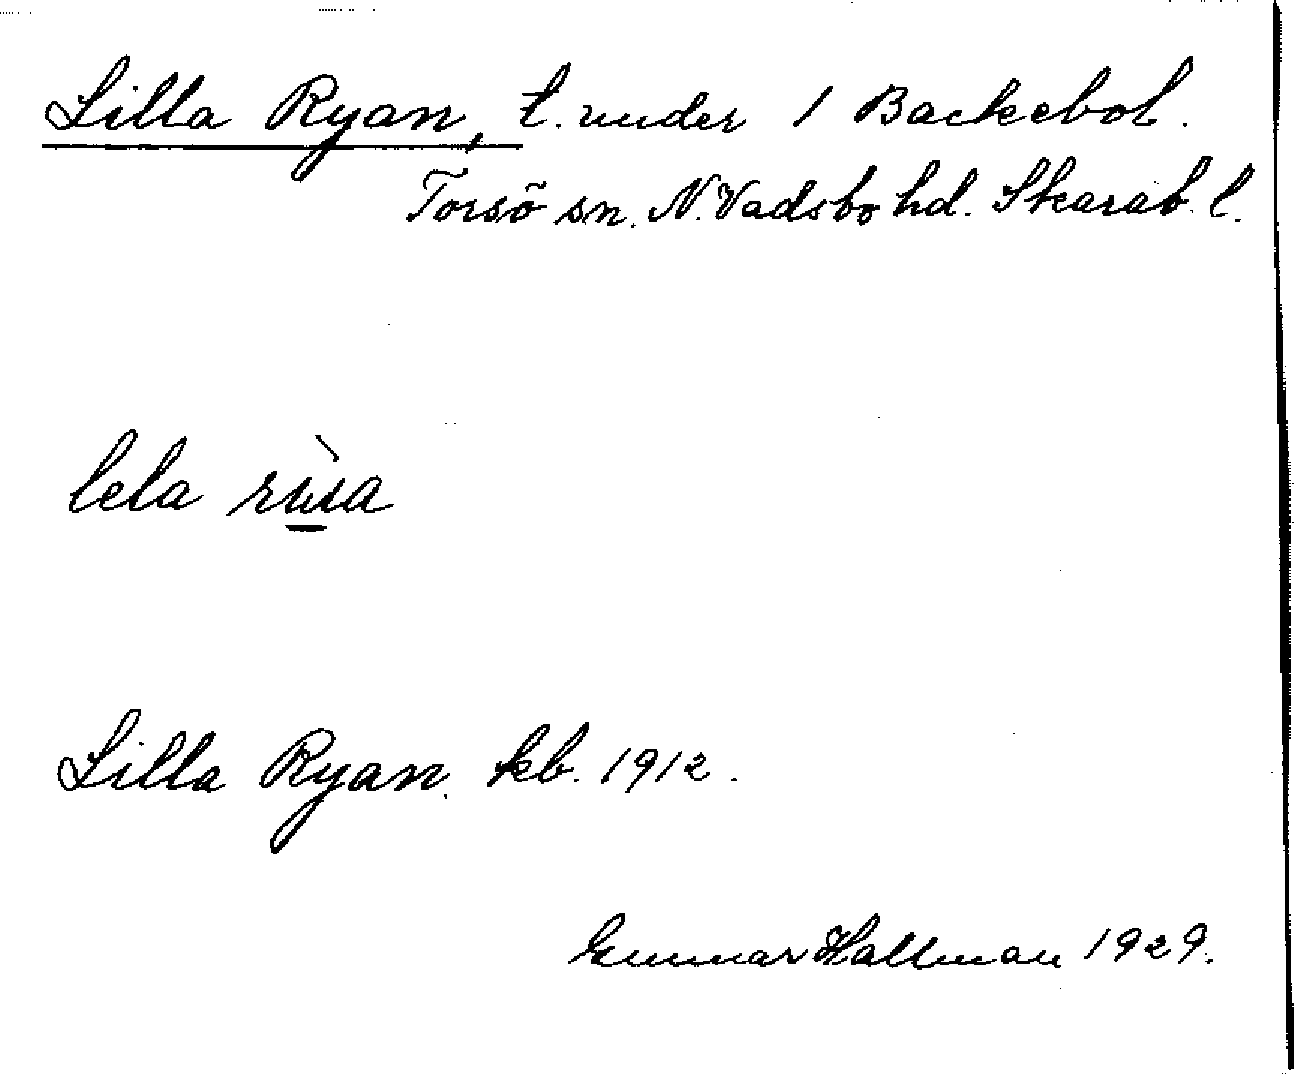 Lilla Ryan, t. under 1 Backebol.
Torsö sn. N. Vadsbo hd. Skarab. l.
lela
Lilla Ryan. kb. 1912.
Gunnar Hallman 1929.